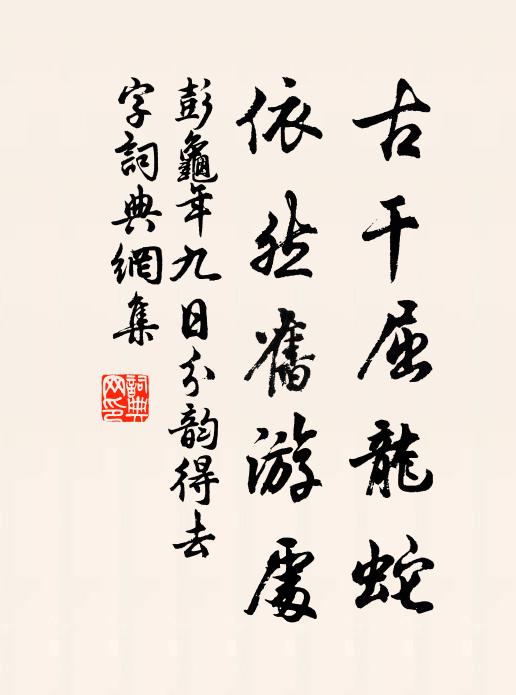 古干屈龍蛇
依然舊游處
彭龜年九日分韵得去
字詞典網集
詞典網印